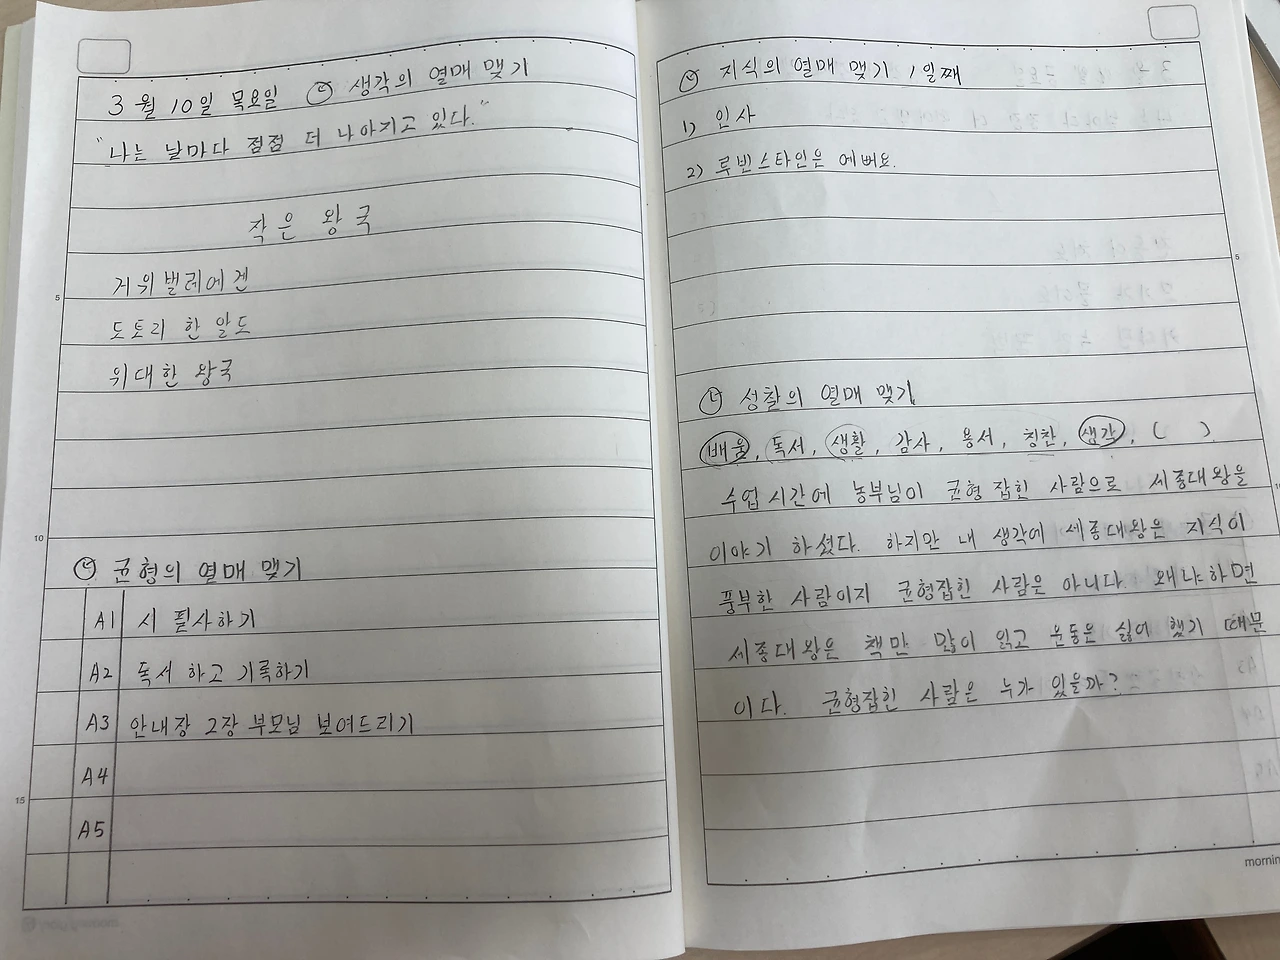 3월 10일 목요일 생각의 열매 맺기
"나는 날마다 점점 더 나아지고 있다."
작은 왕국
거위벨레에겐
도토리 한 알도
위대한 왕국
5
10
균형의 열매 맺기
A1 시 필사하기
A2 독서 하고 기록하기
A3 안내장 2장 부모님 보여드리기
A4
15
A5
지식의 열매 맺기 1일째
1) 인사
2) 루빈스타인은 예뻐요.
5
성찰의 열매 맺기
배움, 독서, 생활, 감사, 용서, 칭찬, 생각, ( )
수업 시간에 농부님이 균형 잡힌 사람으로 세종대왕을
이야기 하셨다. 하지만 내 생각에 세종대왕은 지식이
풍부한 사람이지 균형잡힌 사람은 아니다. 왜냐하면
세종대왕은 책만 많이 읽고 운동은 싫어 했기 때문
이다. 균형잡힌 사람은 누가 있을까?
mornin